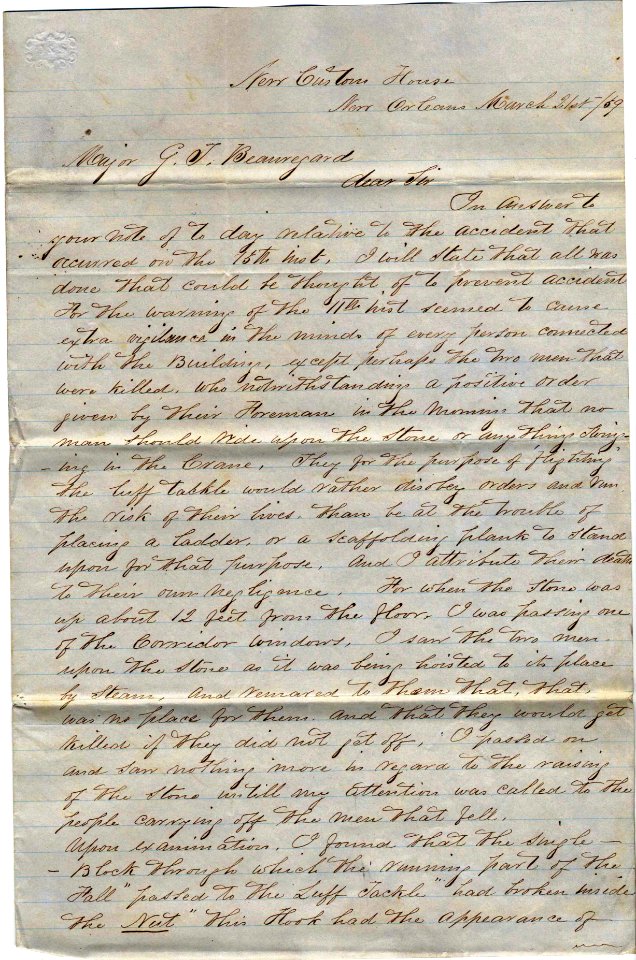 New Custom House
New Orleans March 21st /59
Major G. T. Beauregard
dear Sir
In answer to
your note of to day relative to the accident that
accurred on the 15th inst, I will state that all was
done that could be thought of to prevent accident
For the warning of the 11th inst seemed to cause
extra vigilance in the minds of every person connected
with the Building, except perhaps the two men that
were killed, who notwithstanding a positive order
given by their Foreman in the Morning that no
man should ride upon the Stone or anything swing-
-ing in the Crane, They for the purpose of flighting
the luff tackle would rather disobey orders and run
the risk of their lives, than be at the trouble of
placing a ladder, or a scaffolding plank to stand
upon for that purpose, and I attribute their death
to their own negligence. For when the stone was
up about 12 feet from the floor, I was passing one
of the Corridor windows, I saw the two men
upon the Stone as it was being hoisted to its place
by Steam, and remared to them that, that,
was no place for them. and that they would get
killed if they did not get off, I passed on
and saw nothing more in regard to the raising
of the stone untill my attention was called to the
people carrying off the men that fell.
Upon examination, I found that the single -
- Block through which the "running part of the
Fall" passed to the "Luff Tackle" had broken inside
the Nut" this Hook had the appearance of